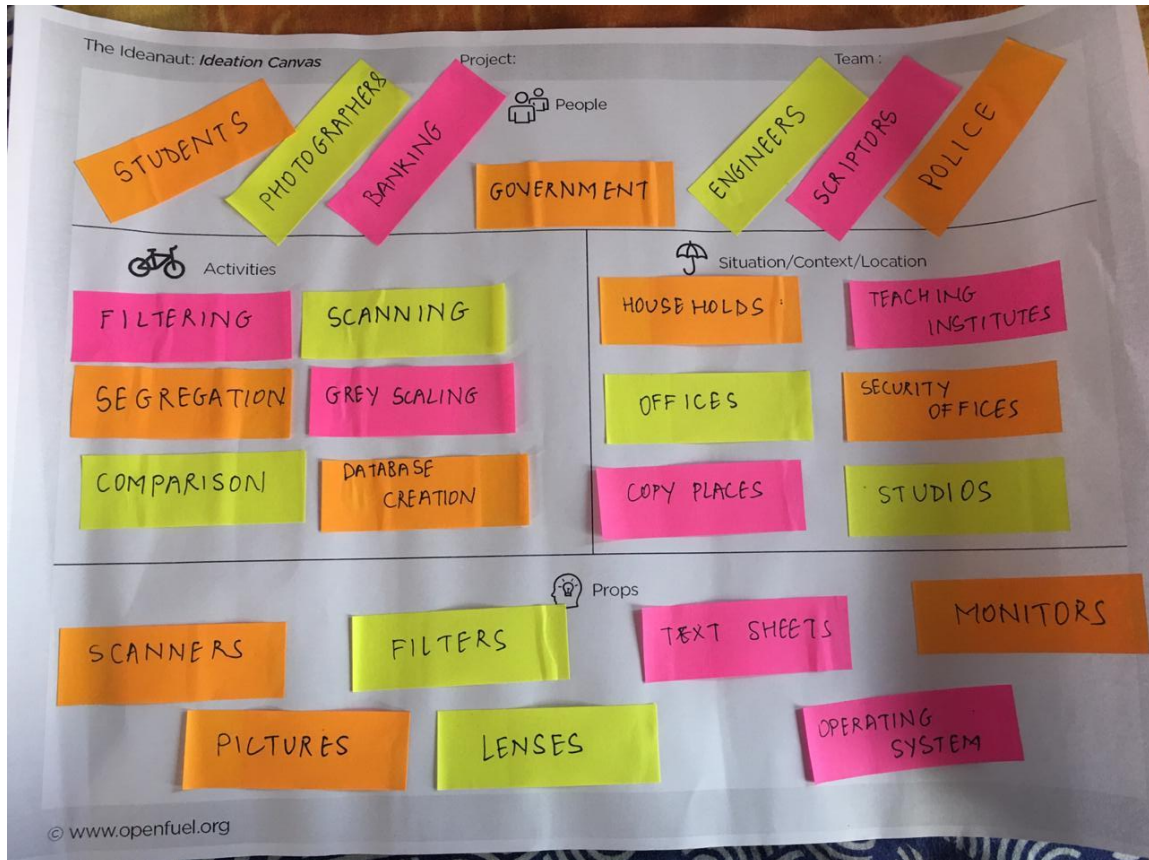 The Ideanaut: Ideation Canvas
Project:
Team :
People
STUDENTS
PHOTOGRAPHERS
BANKING
GOVERNMENT
ENGINEERS
SCRIPTORS
POLICE
Activities
FILTERING
SCANNING
SEGREGATION
GREY SCALING
COMPARISON
DATABASE
CREATION
Situation/Context/Location
HOUSEHOLDS
TEACHING
INSTITUTES
OFFICES
SECURITY
OFFICES
COPY PLACES
STUDIOS
Props
SCANNERS
FILTERS
TEXT SHEETS
MONITORS
PICTURES
LENSES
OPERATING
SYSTEM
© www.openfuel.org